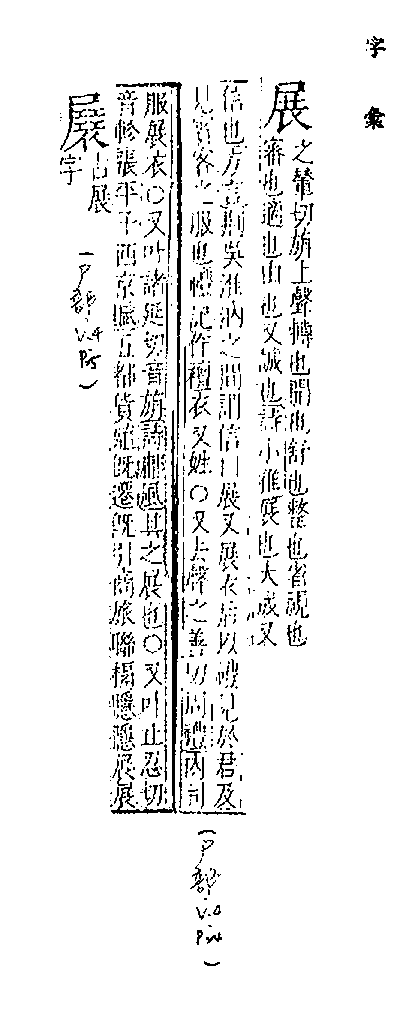 字彙
展
之輦切旃上聲轉也開也舒也整也省視也
審也適也由也又誠也詩小雅展也大成又
信也方言荆吳淮汭之間謂信曰展又展衣后以禮見於君及
見賓客之服也禮記作襢衣又姓○又去聲之善切周禮内司
服展衣○又叶諸延切音旃詩鄘風其之展也○又叶止忍切
音軫張平子西京賦五都貨殖旣遷旣引商旅聯槅隱隱展展
㞡
古展
字
(尸部.V.4
P.5)
(尸部.V.4
P.4)